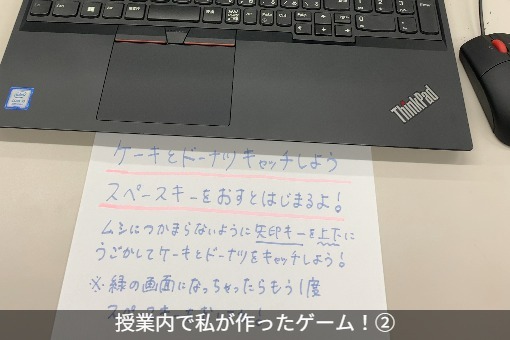 ThinkPad
ケーキとドーナツキャッチしよう
スペースキーをおすとはじまるよ！
ムシにつかまらないように矢印キーを上下に
うごかしてケーキとドーナツをキャッチしよう！
※緑の画面になっちゃったらもう1度
授業内で私が作ったゲーム！②